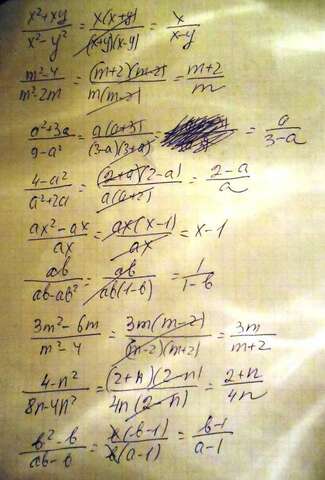 x²+xy/x²-y² = x(x+y)/(x+y)(x-y) = x/x-y
m²-4/m²-2m = (m+2)(m-2)/m(m-2) = m+2/m
a²+3a/9-a² = a(a+3)/(3-a)(3+a) = = a/3-a
4-a²/a²+2a = (2+a)(2-a)/a(a+2) = 2-a/a
ax²-ax/ax = ax(x-1)/ax = x-1
ab/ab-ab² = ab/ab(1-b) = 1/1-b
3m²-6m/m²-4 = 3m(m-2)/(m-2)(m+2) = 3m/m+2
4-n²/8n-4n² = (2+n)(2-n)/4n(2-n) = 2+n/4n
b²-b/ab-b = b(b-1)/b(a-1) = b-1/a-1